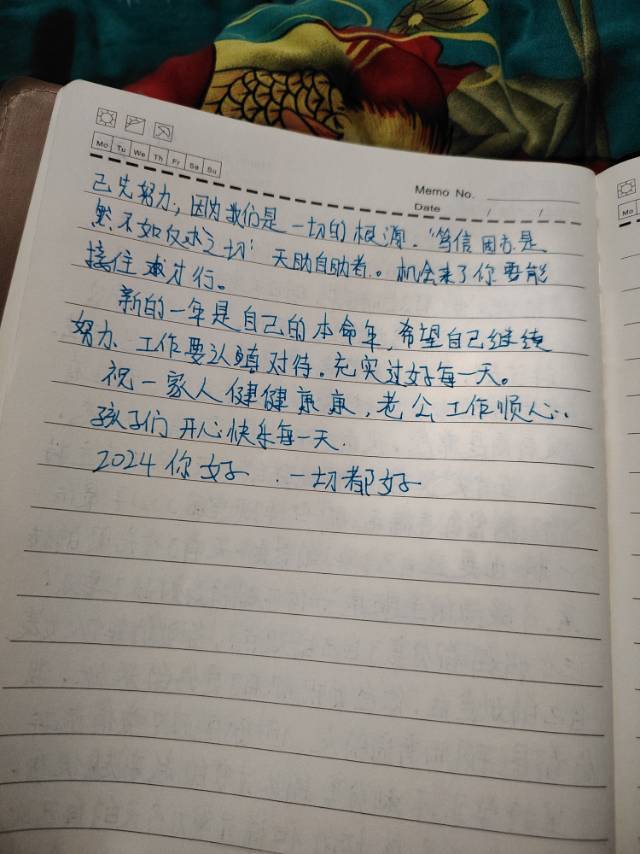 Mo Tu We Th Fr Sa Su
Memo No.
Date / /
Mo
己先努力，因为我们是一切的根源。“笃信固为是
然不如反求之切” 天助自助者。机会来了你要能
接住 才行。
新的一年是自己的本命年，希望自己继续
努力、工作要认真对待。充实过好每一天。
祝一家人健健康康，老公工作顺心、
孩子们开心快乐每一天.
2024你好 . 一切都好